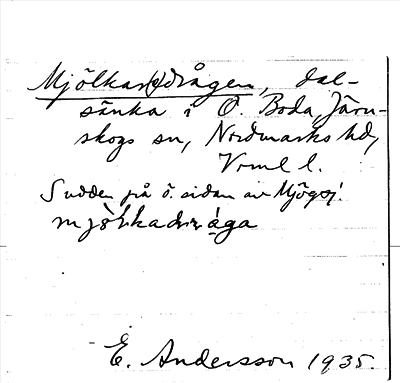 Mjölkar(e)drågen, dal-
sänka i Ö. Boda, Järn-
skogs sn, Nordmarks hd,
Vrml l.
Sudden på ö. sidan av Mjögsj.
E. Andersson 1935.